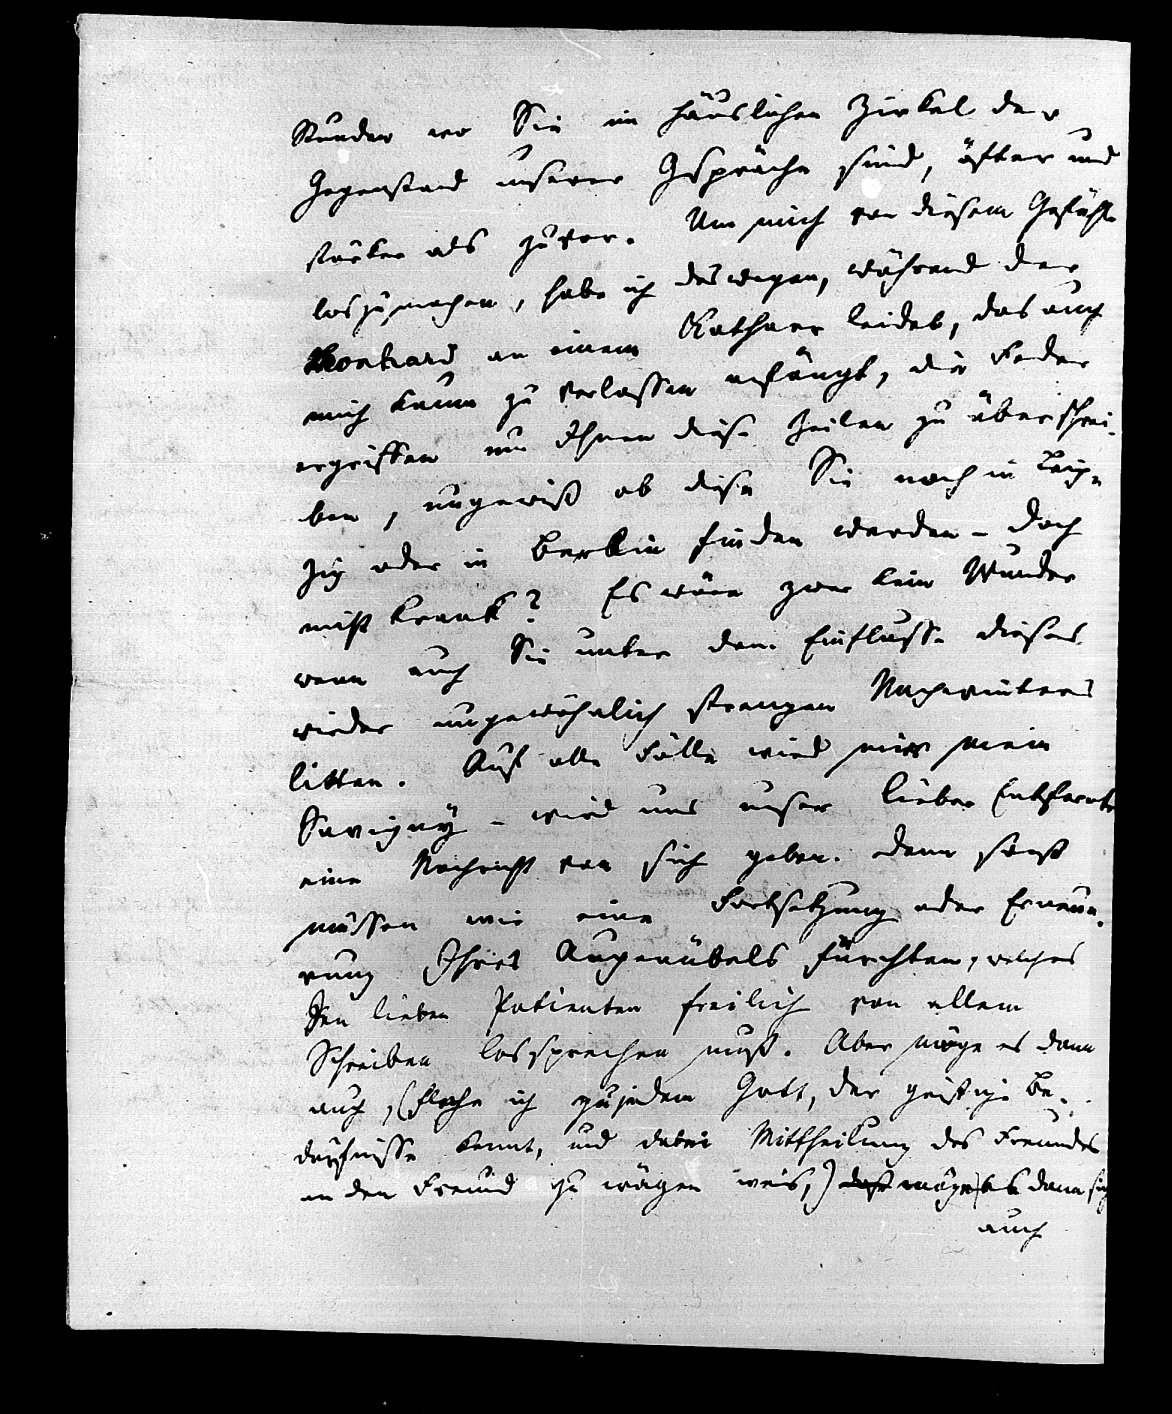 Stunden wo Sie im häuslichen Zirkel der
Gegenstand unserer Gespräche sind, öfter und
stärker als zuvor. Um mich von diesem Gefühle
loszumachen, habe ich deswegen, während der
Leonhard an einem Katharr leidet, das auch
mich kaum zu verlassen anfängt, die Feder
ergriffen um Ihnen diese Zeilen zu überschrei-
ben, ungewiß ob diese Sie noch in Leip-
zig oder in Berlin finden werden - doch
nicht krank? Es wäre zwar kein Wunder
wenn auch Sie unter dem Einflusse dieses
wieder ungewöhnlich strengen Nachwinters
litten. Auf alle Fälle wird mir mein
Savigny - wird uns unser lieber Entfernte
eine Nachricht von sich geben. Denn sonst
müssen wir eine Fortsetzung oder Erneue-
rung Ihres Augenübels fürchten, welches
den lieben Patienten freilich von allem
Schreiben lossprechen muß. Aber möge es dann
auch, (flehe ich zu jedem Gott, der geistige Be-
dürfnisse kennt, und dabei Mittheilung des Freundes
an den Freund zu wägen weis,) möge es dann sich
auch